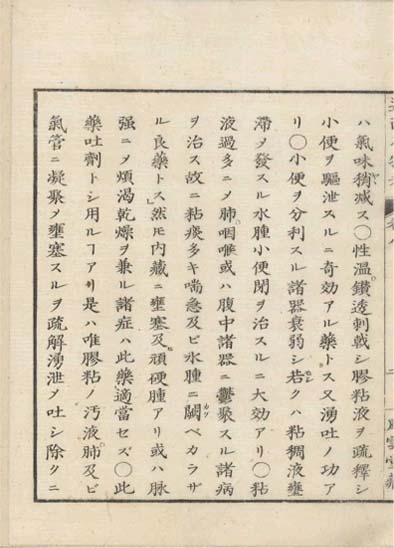 ハ氣味稍减ス○性溫鑽透刺戟シ膠粘液ヲ疏釋シ
小便ヲ驅泄スルニ奇効アル藥トス又湧吐ノ功ア
リ○小便ヲ分利スル諸器衰弱シ若クハ粘稠液壅
滯メ發スル水腫小便閉ヲ治スルニ大効アリ○粘
液過多ニメ肺咽喉或ハ腹中諸器ニ鬱聚スル諸病
ヲ治ス故ニ粘痰多キ喘急及ビ水腫ニ闕ベカラザ
ル良藥トス然モ内藏ニ壅塞及頑硬腫アリ或ハ脉
强ニメ煩渴乾燥ヲ兼ル諸症ハ此藥適當セズ○此
藥吐劑トシ用ルヿアリ是ハ唯膠粘ノ汚液肺及ビ
氣管ニ凝聚メ壅塞スルヲ疏解湧泄メ吐シ除クニ